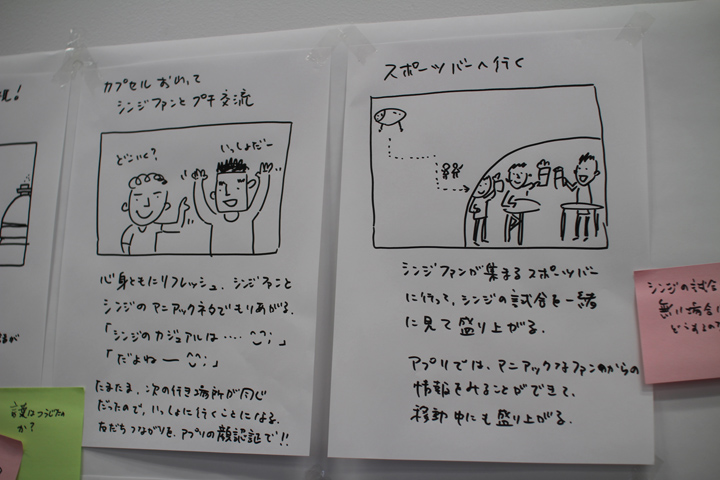 カプセルおわって
シンジファンとプチ交流
どこいく?
いっしょだー
心身ともにリフレッシュ、シンジファンと
シンジのマニアックネタでもりあがる.
「シンジのカジュアルは…. ^^;」
「だよねー ^^;」
たまたま、次の行き場所が同じ
だったので、いっしょに行くことになる.
友だちつながりを、アプリの顔認証で!!
スポーツバーへ行く
シンジファンが集まるスポーツバー
に行って、シンジの試合を一緒
に見て盛り上がる.
アプリでは、マニアックなファンのからの
情報をみることができて、
移動中にも盛り上がる.
シンジの試合
無い場合は
どうするの?
か?